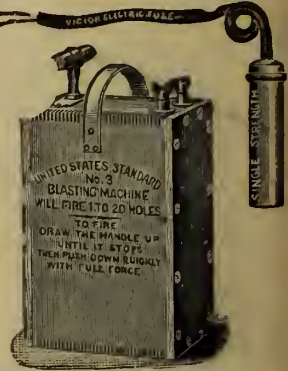 VICTOR ELECTRIC FUSE
SINGLE STRENGTH
UNITED STATES STANDARD
No. 3
BLASTING MACHINE
WILL FIRE 1 TO 20 HOLES
TO FIRE
DRAW THE HANDLE UP
UNTIL IT STOPS
THEN PUSH DOWN QUICKLY
WITH FULL FORCE